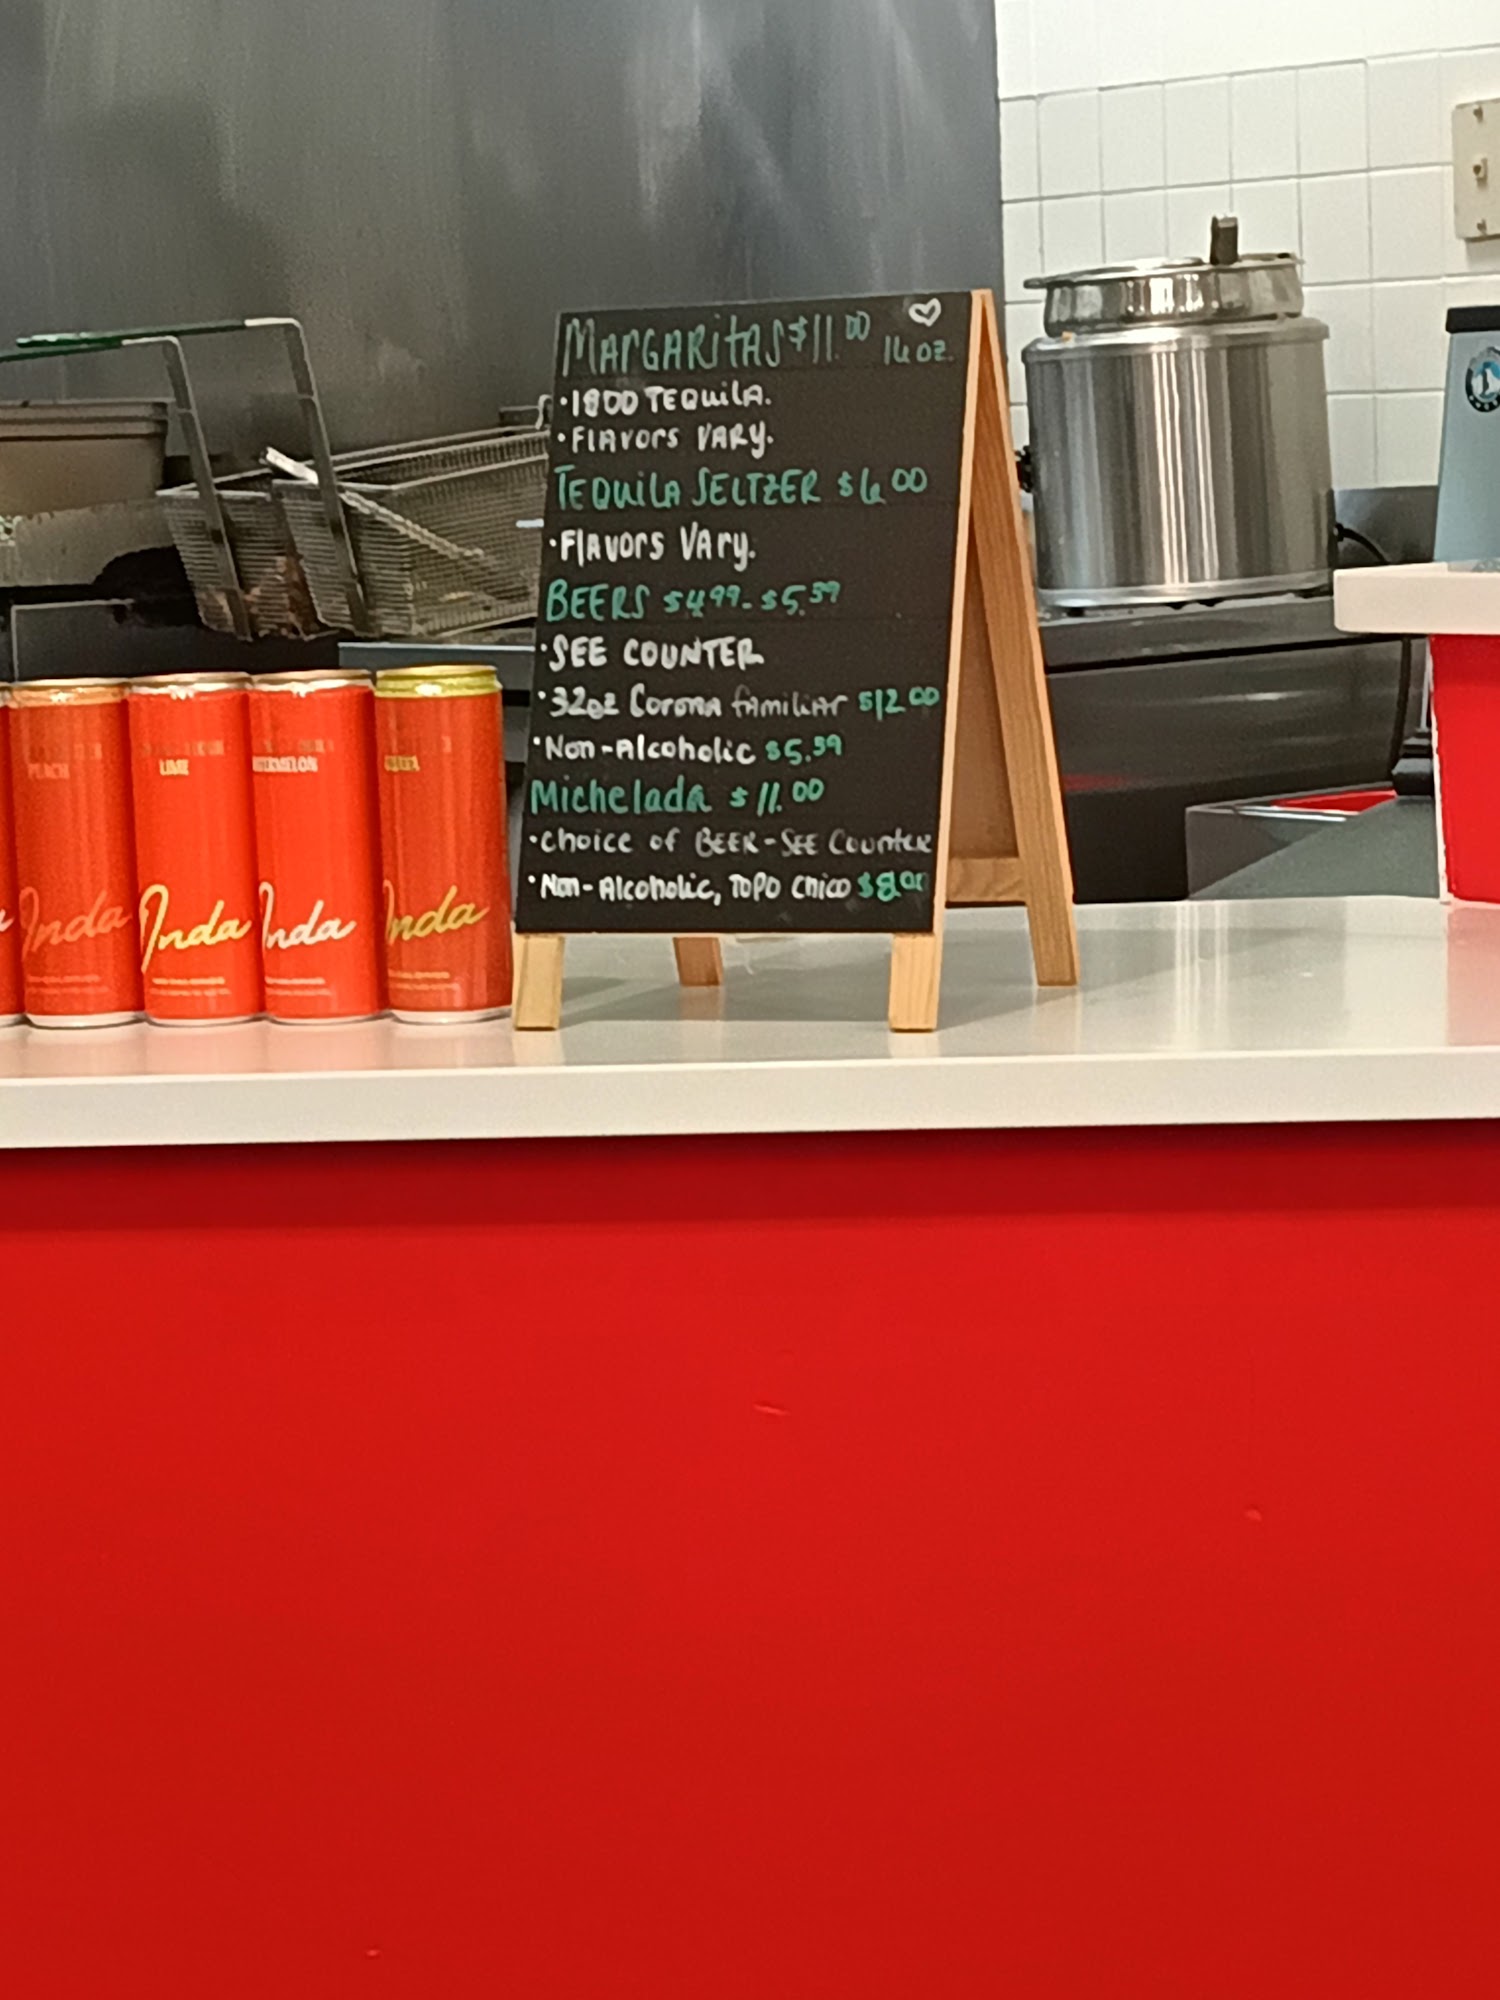 MARGARITAS $11.00 16 oz.
• 1800 TEQUILA.
• FLAVORS VARY.
TEQUILA SELTZER $6.00
• FLAVORS VARY.
BEERS $4.99 - $5.59
• SEE COUNTER
• 32oz Corona familiar $12.00
• Non-Alcoholic $5.59
Michelada $11.00
• Choice of BEER - SEE Counter
• Non-Alcoholic, TOPO Chico $8.00
PEACH
LIME
Onda
Onda
Onda
Onda